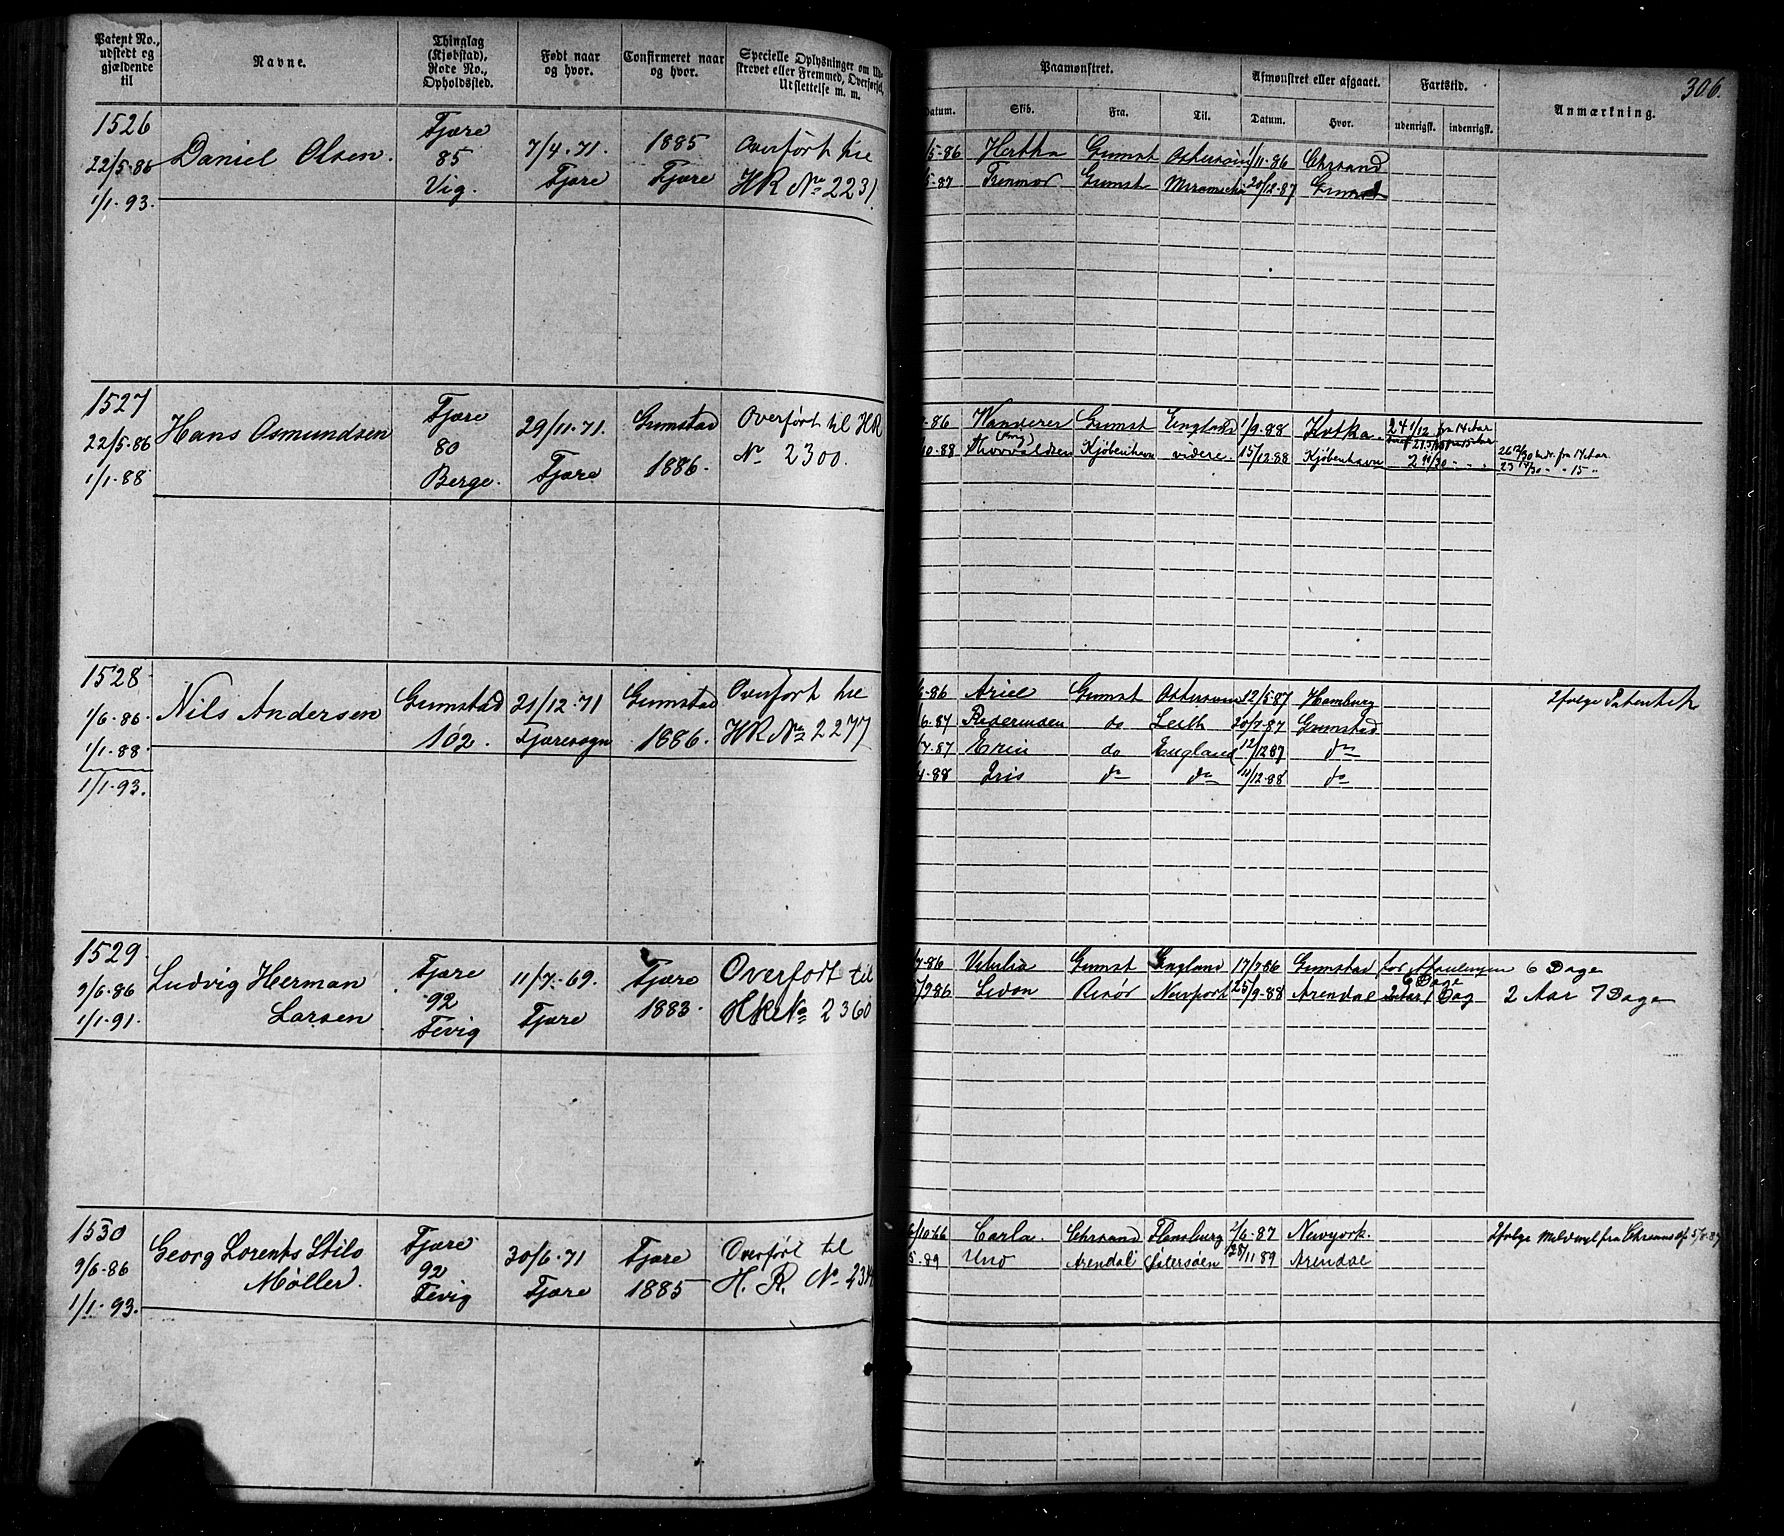 306.
Patent No., udstedt og gjældende til
Navne.
Thinglag (Kjøbstad), Rode No., Opholdssted.
Født naar og hvor.
Confirmeret naar og hvor.
Specielle Oplysninger om Ud-
strevet eller Fremmed, Overførsel,
Udslettelse m. m.
Paamønstret.
Afmønstret eller afgaaet.
Fartstid.
Anmærkning.
Datum. Skib. Fra. Til. Datum. Hvor. udenrigsk. indenrigsk.
1526
22/5-86
1/1-93.
Daniel Olsen.
Fjære
85
Vig.
7/4.71.
Fjære
1885
Fjære
Overført til
HR No 2231.
5-86 Hertha Grimst Østersøen 1/11-86 Chrsand
5-87 Grimst 20/12-87 Grimst
1527
22/5-86
1/1-88
Hans Osmundsen
Fjære
80
Berge.
29/11-71.
Fjære
Grimstad
1886.
Overført til HR
No 2300.
-86 Wanderer Grimst England 1/9-88 Kotka. 24 1/12 fra 14 Aar
(Eng)
10-88 Thorvaldsen Kjøbenhavn videre. 15/12-88 Kjøbenhavn
1528
1/6-86.
1/1-88
1/1-93.
Nils Andersen
Grimstad
102.
21/12-71
Fjæresogn
Grimstad
1886.
Overført til
HR No 2277
6-86 Ariel Grimst Østersøen 12/5-87 Hamburg Ifølge Patentet
6-87 do Leith 20/7-87 Grimstad
7-87 Erin do England 12/12 87 do
4-88 Iris do do 11/12-88 do
1529
9/6-86
1/1-91.
Ludvig Herman
Larsen
Fjære
92
Fevig
11/7-69.
Fjære
Fjære
1883.
Overført til
HR No 2360
7-86 Grimst England 17/7 86 Grimstad 6 Dage
6 Dage
9 86 Risør Newport 25/9-88 Arendal 2 Aar 1 Dag 2 Aar 7 Dage
1530
9/6-86
1/1-93.
Georg Lorents Stilo
Møller.
Fjære
92
Fevig
30/6-71
Fjære
Fjære
1885
Overført til
H. R. No
10-86 Carla. Chrsand Flensburg 2/6-87 Newyork. Ifølge
5-89 Uno Arendal Østersøen 28/11 89 Arendal